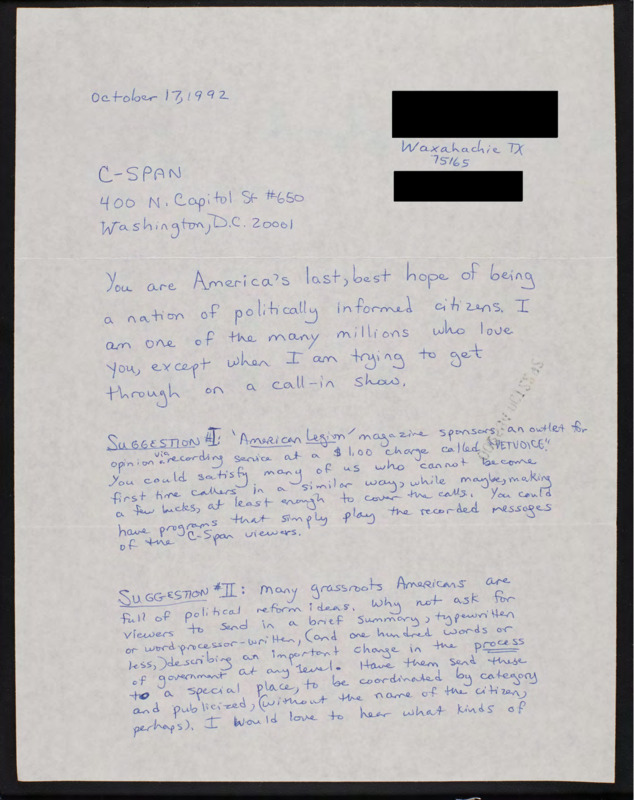 October 17, 1992
Waxahachie TX
75165
C-SPAN
400 N. Capitol St #650
Washington, D.C. 20001
You are America's last, best hope of being
a nation of politically informed citizens. I
am one of the many millions who love
you, except when I am trying to get
through on a call-in show.
SUGGESTION #I: 'American Legion' magazine sponsors an outlet for
opinion via recording service at a $1.00 charge called "VETVOICE."
You could satisfy many of us who cannot become
first time callers in a similar way, while maybe, making
a few bucks, at least enough to cover the calls. You could
have programs that simply play the recorded messages
of the C-Span viewers.
SUGGESTION #II: Many grassroots Americans are
full of political reform ideas. Why not ask for
viewers to send in a brief summary, typewritten
or word-processor-written, (and one hundred words or
less,) describing an important change in the process
of government at any level. Have them send these
to a special place, to be coordinated by category
and publicized, (without the name of the citizen,
perhaps). I would love to hear what kinds of